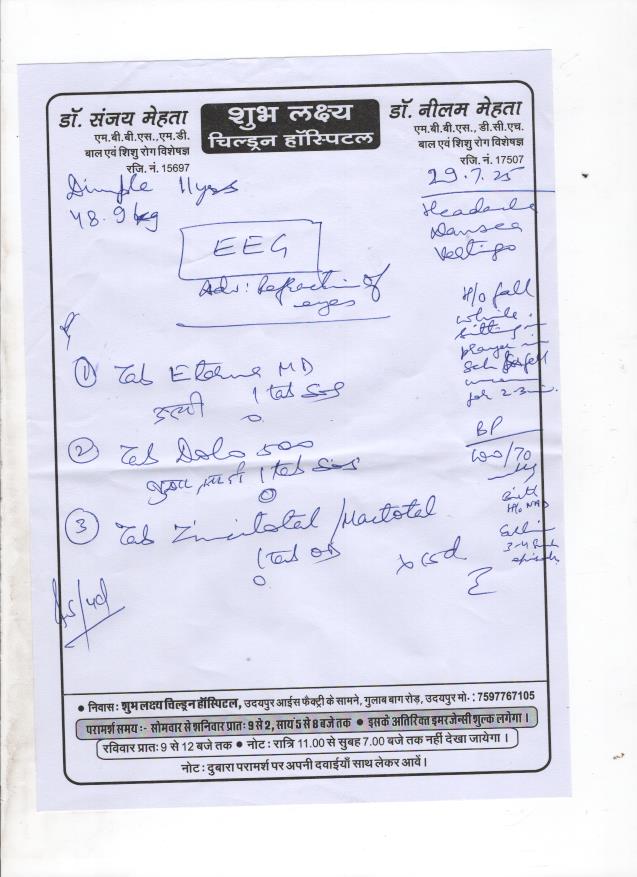 डॉ. संजय मेहता
एम.बी.बी.एस.,एम.डी.
बाल एवं शिशु रोग विशेषज्ञ
रजि. नं. 15697
शुभ लक्ष्य
चिल्ड्रन हॉस्पिटल
डॉ. नीलम मेहता
एम.बी.बी.एस., डी.सी.एच.
बाल एवं शिशु रोग विशेषज्ञ
रजि. नं. 17507
Dimple 11yrs
48.9 kg
29.7.25
Headache
Nausea
Vertigo
EEG
Adv: Refraction of
eyes
H/o fall
while
sitting in
prayer in
for 2-3 min
BP
100/70
① Tab MD
उल्टी 1 tab sos
② Tab Dolo 500
1 tab sos
③ Tab
1 tab OD x 15d
• निवास : शुभ लक्ष्य चिल्ड्रन हॉस्पिटल, उदयपुर आईस फैक्ट्री के सामने, गुलाब बाग रोड़, उदयपुर मो.: 7597767105
परामर्श समय :- सोमवार से शनिवार प्रातः 9 से 2, सायं 5 से 8 बजे तक • इसके अतिरिक्त इमरजेन्सी शुल्क लगेगा ।
रविवार प्रातः 9 से 12 बजे तक • नोट : रात्रि 11.00 से सुबह 7.00 बजे तक नहीं देखा जायेगा ।
नोट : दुबारा परामर्श पर अपनी दवाईयाँ साथ लेकर आवें ।